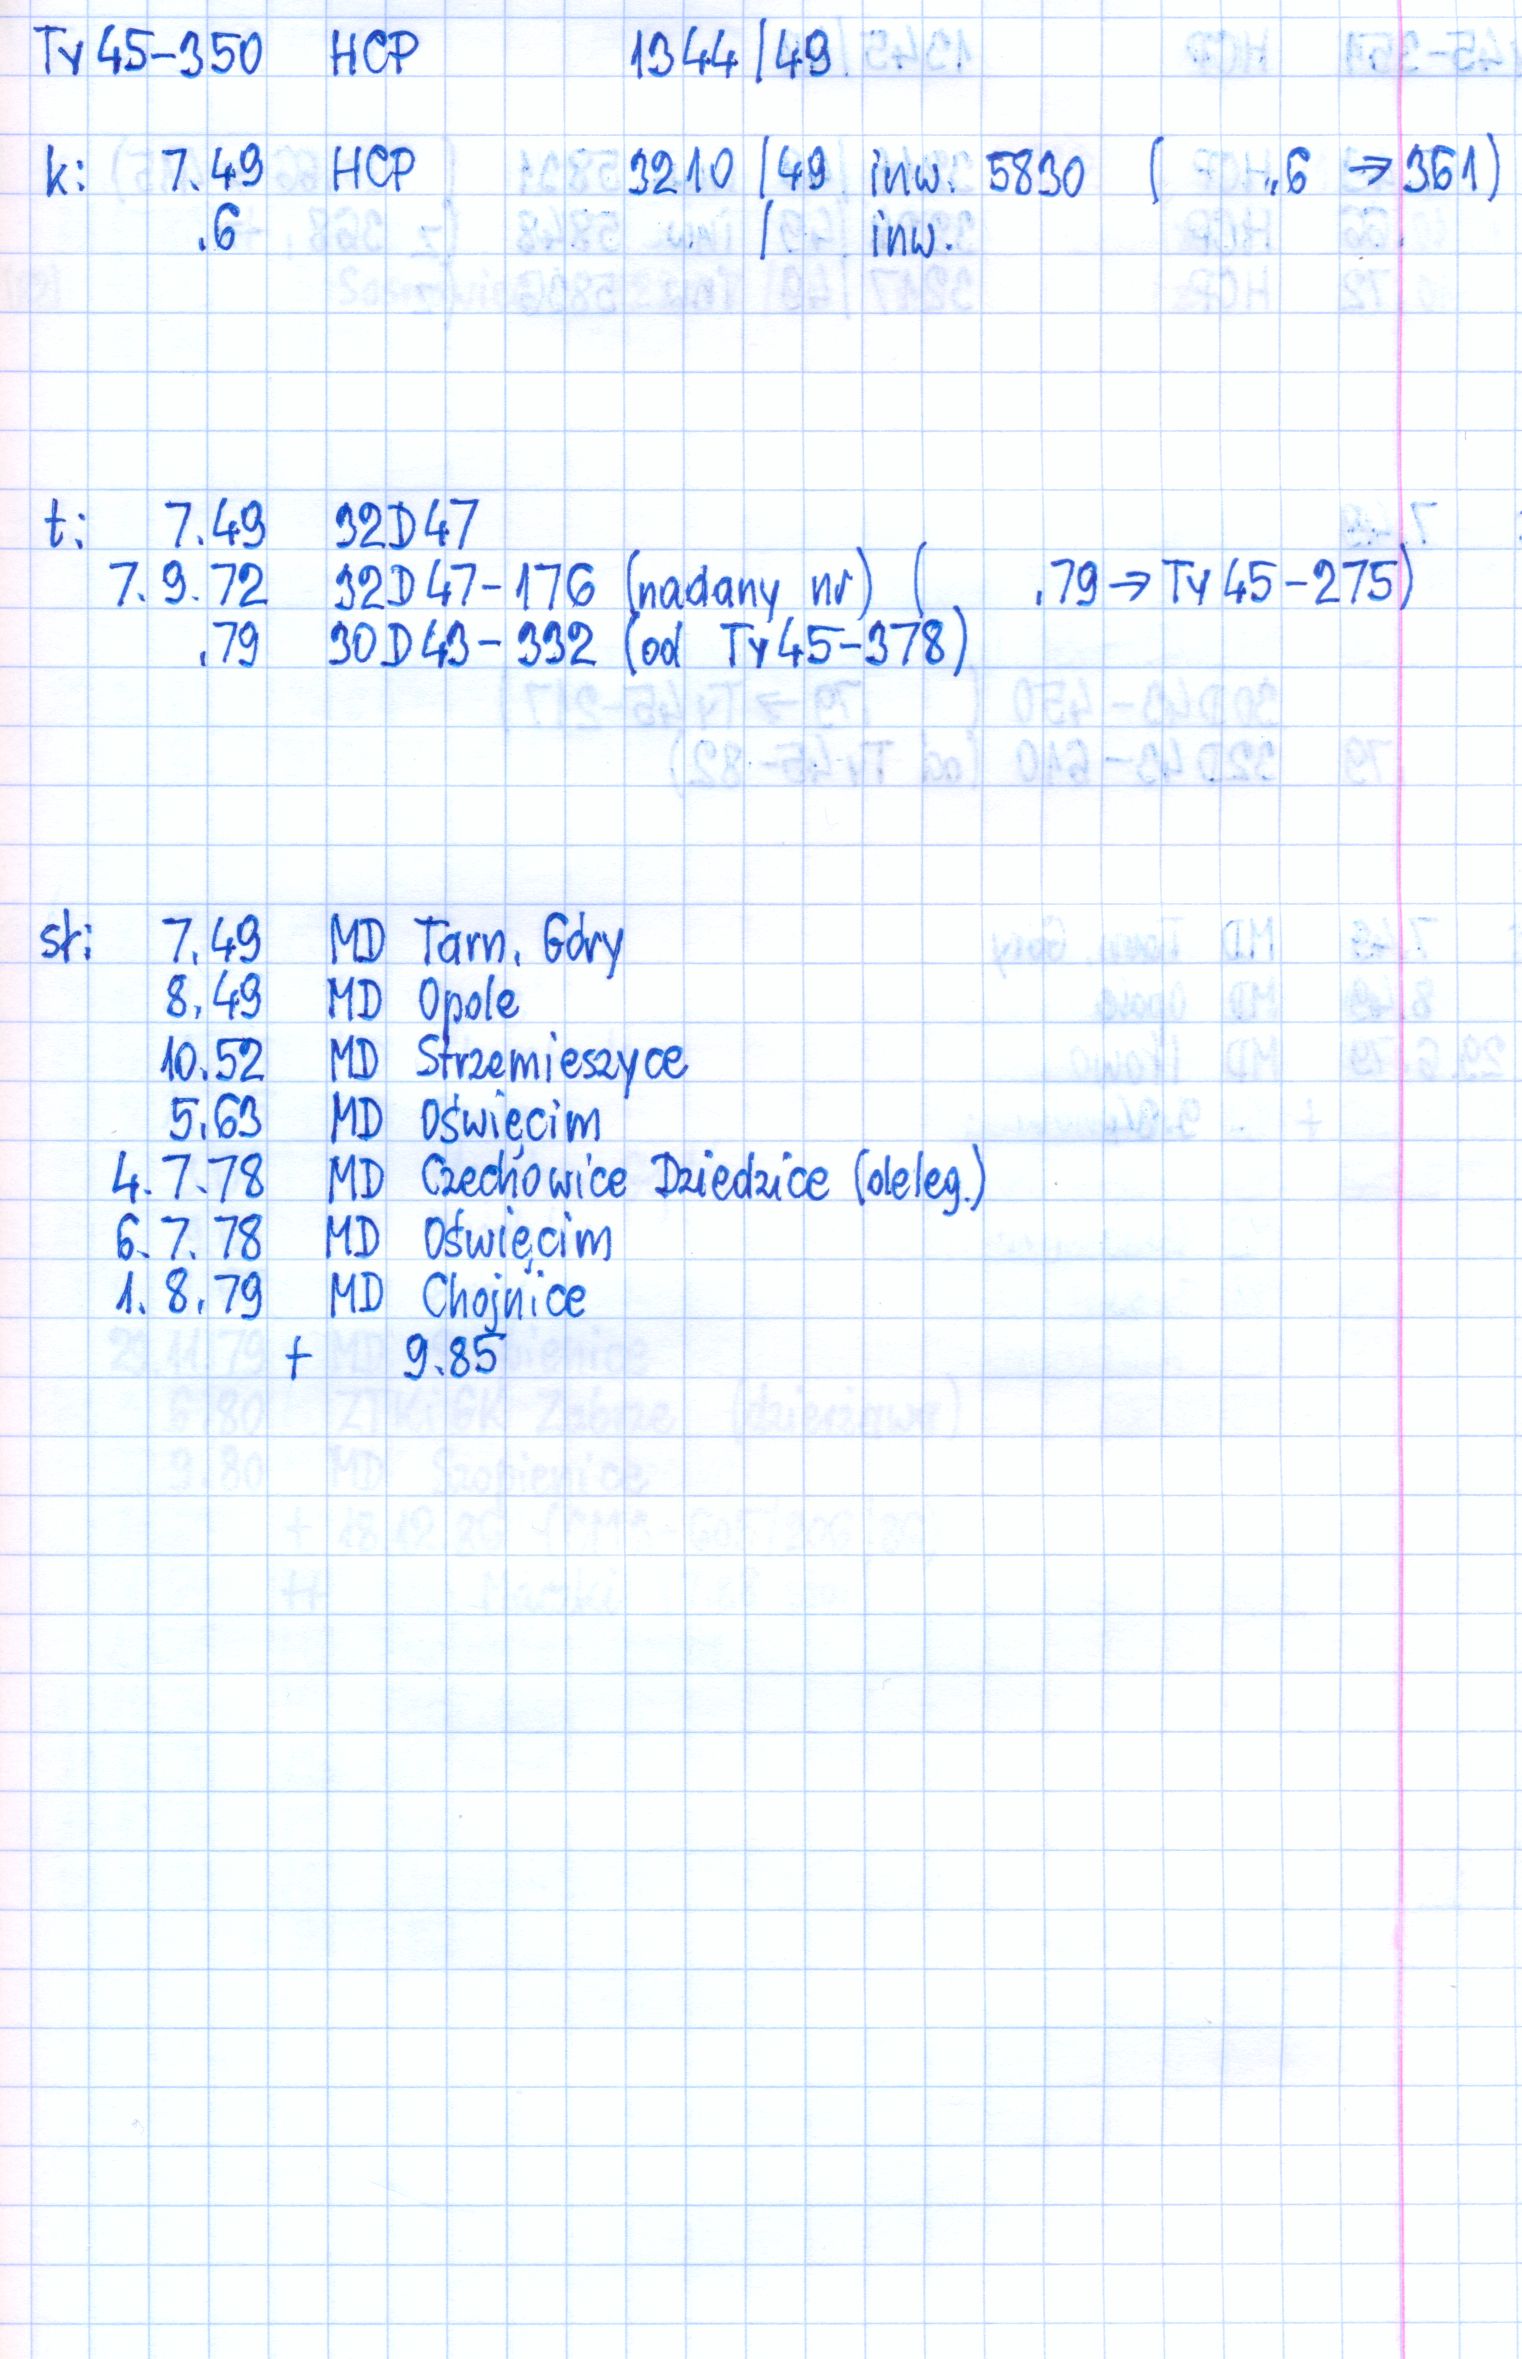 Ty45-350 HCP 1344/49
k: 7.49 HCP 3210/49 inw. 5830 ( .6 → 361)
.6 / inw.
t: 7.49 32D47
7.9.72 32D47-176 (nadany nr) ( .79 → Ty45-275)
.79 30D43-332 (od Ty45-378)
st: 7.49 MD Tarn. Góry
8.49 MD Opole
10.52 MD Strzemieszyce
5.63 MD Oświęcim
4.7.78 MD Czechowice Dziedzice (deleg.)
6.7.78 MD Oświęcim
1.8.79 MD Chojnice
+ 9.85